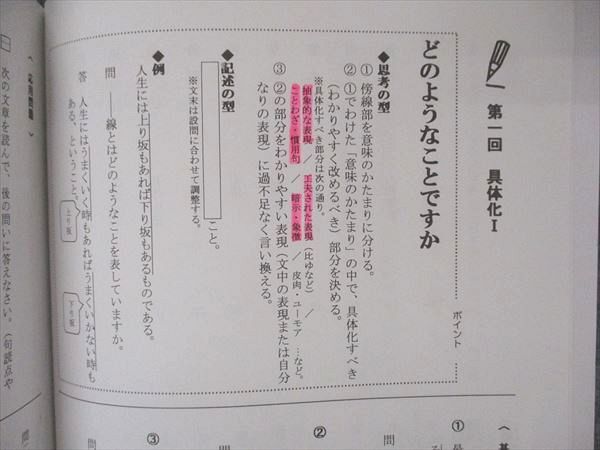 第一回 具体化Ⅰ
ポイント
どのようなことですか
◆思考の型
① 傍線部を意味のかたまりに分ける。
② ①でわけた「意味のかたまり」の中で、具体化すべき
(わかりやすく改めるべき)部分を決める。
※具体化すべき部分は次の通り。
抽象的な表現 / 工夫された表現(比ゆなど) /
ことわざ・慣用句 / 暗示・象徴 / 皮肉・ユーモア …など。
③ ②の部分をわかりやすい表現(文中の表現または自分
なりの表現)に過不足なく言い換える。
◆記述の型
こと。
※文末は設問に合わせて調整する。
◆例
人生には上り坂もあれば下り坂もあるものである。
問 ――線とはどのようなことを表していますか。
答 人生にはうまくいく時もあればうまくいかない時も
ある、ということ。
上り坂
下り坂
〈応用問題〉
一
次の文章を読んで、後の問いに答えなさい。(句読点や
〈基
①
問
②
問
③
問